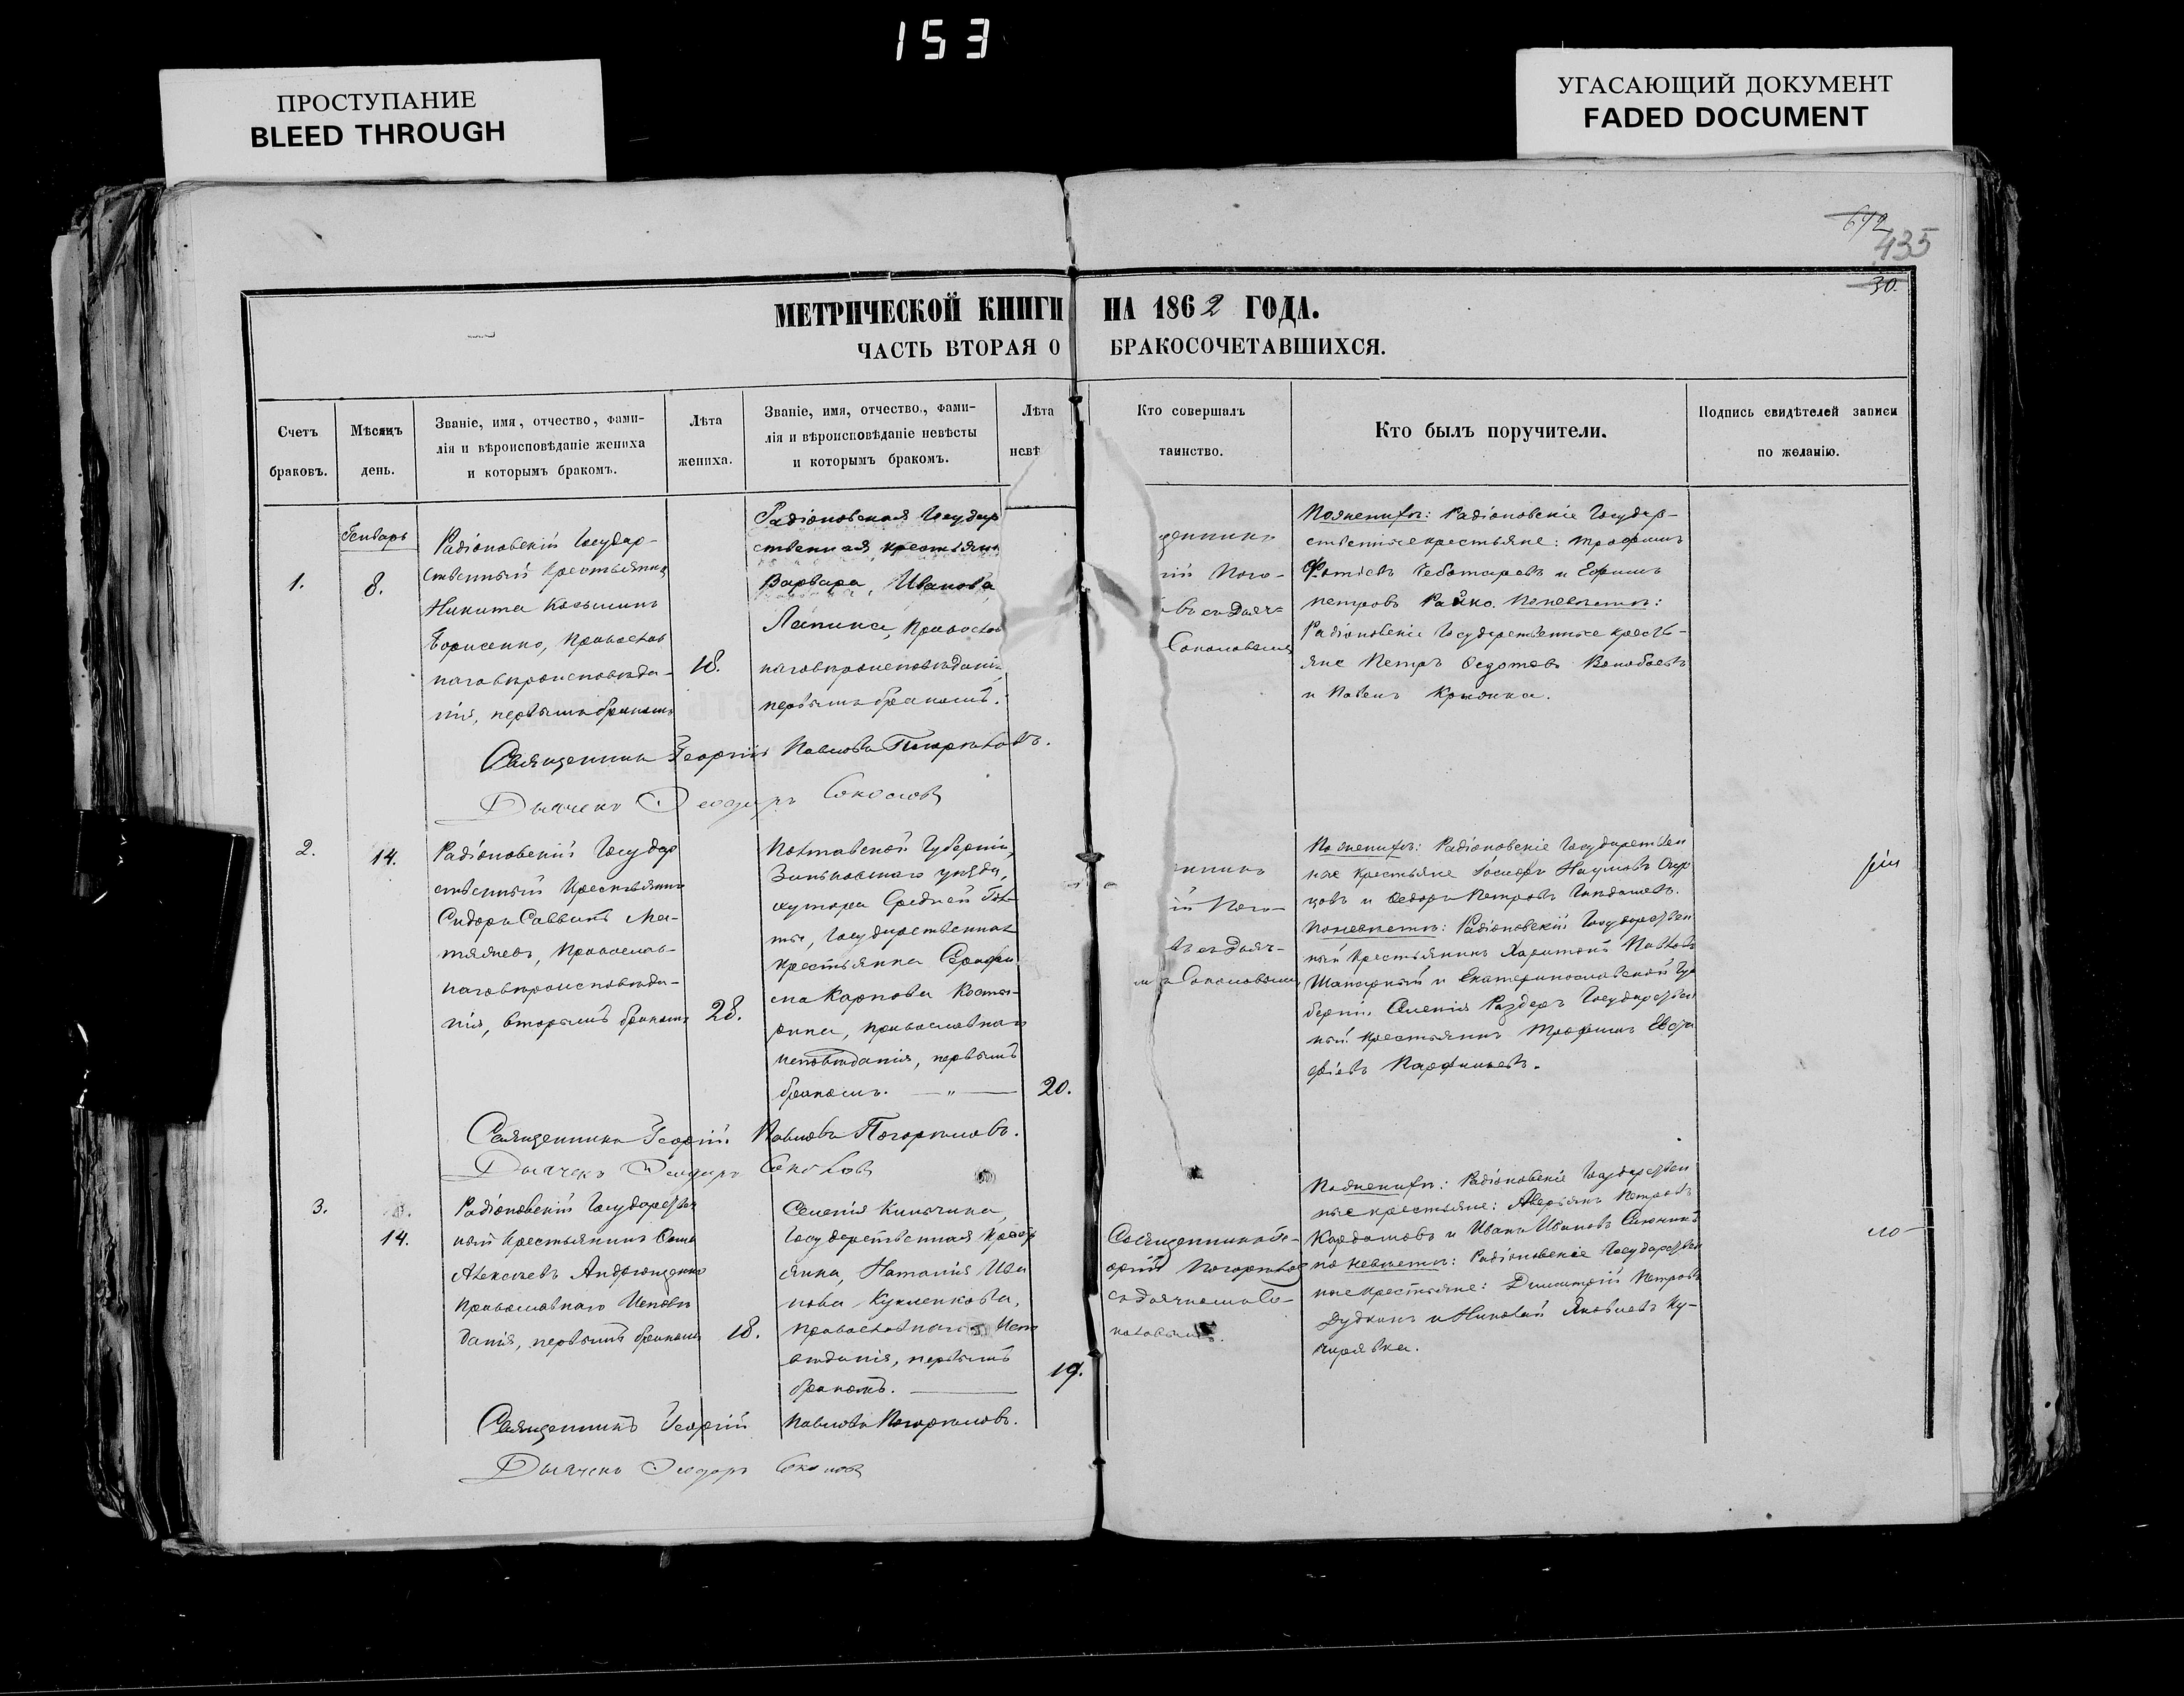 153
ПРОСТУПАНИЕ
BLEED THROUGH
УГАСАЮЩИЙ ДОКУМЕНТ
FADED DOCUMENT
642
435
30.
МЕТРИЧЕСКОЙ КНИГИ НА 1862 ГОДА.
ЧАСТЬ ВТОРАЯ О БРАКОСОЧЕТАВШИХСЯ.
Счетъ
браковъ.
Мѣсяцъ
день.
Званіе, имя, отчество, фами-
лія и вѣроисповѣданіе жениха
и которымъ бракомъ.
Лѣта
жениха.
Званіе, имя, отчество, фами-
лія и вѣроисповѣданіе невѣсты
и которымъ бракомъ.
Лѣта
невѣ
Кто совершалъ
таинство.
Кто былъ поручители.
Подпись свидѣтелей записи
по желанію.
1.
Генварь
8.
Радіоновскій Государ-
ственный крестьянинъ
Никита Косьминъ
Борисенко, Православ
наго вѣроисповѣда-
нія, первымъ бракомъ
18.
Радіоновская Государ
ственная крестьянк
Варвара, Иванова
Лапина, Православ
наго вѣроисповѣданія
первымъ бракомъ.
щенникъ
ій Пого-
въ съ Дьяч-
Соколовымъ
По женихѣ: Радіоновскіе Государ-
ственные крестьяне: Трофимъ
Фотіевъ Чеботаревъ и Ефимъ
Петровъ Райко. По невѣстѣ:
Радіоновскіе Государственные кресть-
яне Петръ Федотовъ
и Павелъ
Священникъ Георгій Павловъ Погорѣловъ.
Дьячекъ Ѳеодоръ Соколовъ
2.
14.
Радіоновскій Государ
ственный Крестьянинъ
Сидоръ Саввинъ Ма-
Православ-
наго вѣроисповѣда-
нія, вторымъ бракомъ
28.
Полтавской Губерніи,
Зиньковскаго уѣзда,
хутора Средней
Государственная
крестьянка
Карпова
православнаго
исповѣданія, первымъ
бракомъ. — „ —
20.
нникъ
ій Пого-
въ съ Дьяч-
Соколовымъ
По женихѣ: Радіоновскіе Государствен
ные крестьяне Іосифъ Наумовъ Огур
цовъ и Федоръ Петровъ
По невѣстѣ: Радіоновскій Государствен
ный крестьянинъ Харитонъ Павловъ
и Екатеринославской Гу
берніи Селенія Раздоръ Государствен
ный крестьянинъ Трофимъ
Священникъ Георгій Павловъ Погорѣловъ.
Дьячекъ Ѳеодоръ Соколовъ
3.
14.
Радіоновскій Государствен
ный Крестьянинъ
Алексѣевъ Андрющенко
Православнаго Исповѣ
данія, первымъ бракомъ
18.
Селенія Кинычина,
Государственная Крест
янка, Наталія Ива
нова
православнаго Испо
вѣданія, первымъ
бракомъ.
19.
Священникъ Ге-
оргій Погорѣловъ
съ дьячкомъ Со-
коловымъ.
По женихѣ: Радіоновскіе Государствен
ные крестьяне: Аверьянъ Петровъ
Кардашовъ и Иванъ Ивановъ
по невѣстѣ: Радіоновскіе Государствен
ные крестьяне: Димитрій Петровъ
Дудкинъ и Николай Яковлевъ Ку-
чирявка.
Священникъ Георгій Павловъ Погорѣловъ.
Дьячекъ Ѳеодоръ Соколовъ